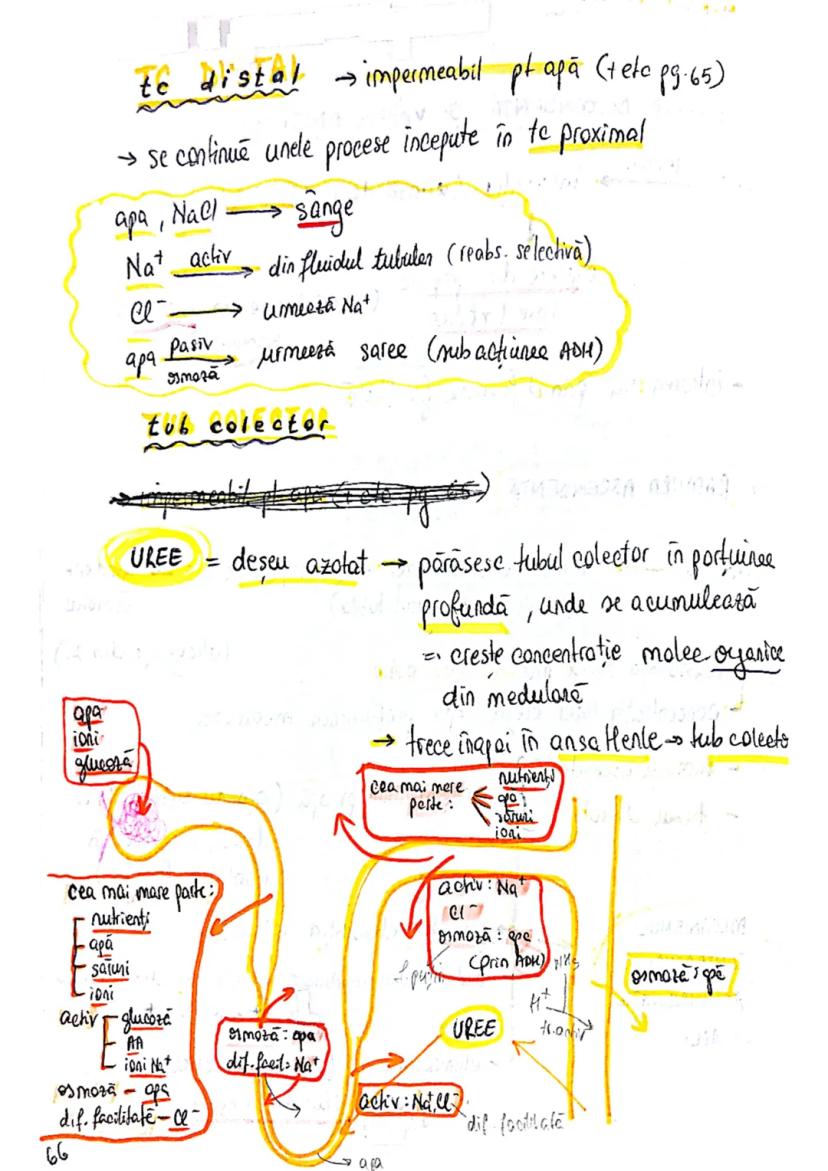 tc distal → impermeabil pt apă (+ etc pg. 65)
→ se continuă unele procese începute în tc proximal
apa, NaCl → sânge
Na⁺ activ → din fluidul tubular (reabs. selectivă)
Cl⁻ → urmează Na⁺
apa pasiv → urmează sarea (sub acțiunea ADH)
osmoză
tub colector
impermeabil pt apă (+ etc pg 65)
UREE = deșeu azotat → părăsesc tubul colector în porțiunea
profundă, unde se acumulează
=> crește concentrație molec. organice
din medulară
→ trece înapoi în ansa Henle → tub colecto
apă
ioni
glucoză
cea mai mare parte:
nutrienți
apă
săruri
ioni
cea mai mare parte:
nutrienți
apă
săruri
ioni
activ glucoză
AA
ioni Na⁺
osmoză – apa
dif. facilitată – Cl⁻
osmoză: apa
dif. facil: Na⁺
activ: Na⁺
Cl⁻
osmoză: apa
(prin ADH)
NH₃
H⁺
tr. activ
osmoză: apă
UREE
activ: Na⁺, Cl⁻
dif. facilitată
→ apa
66